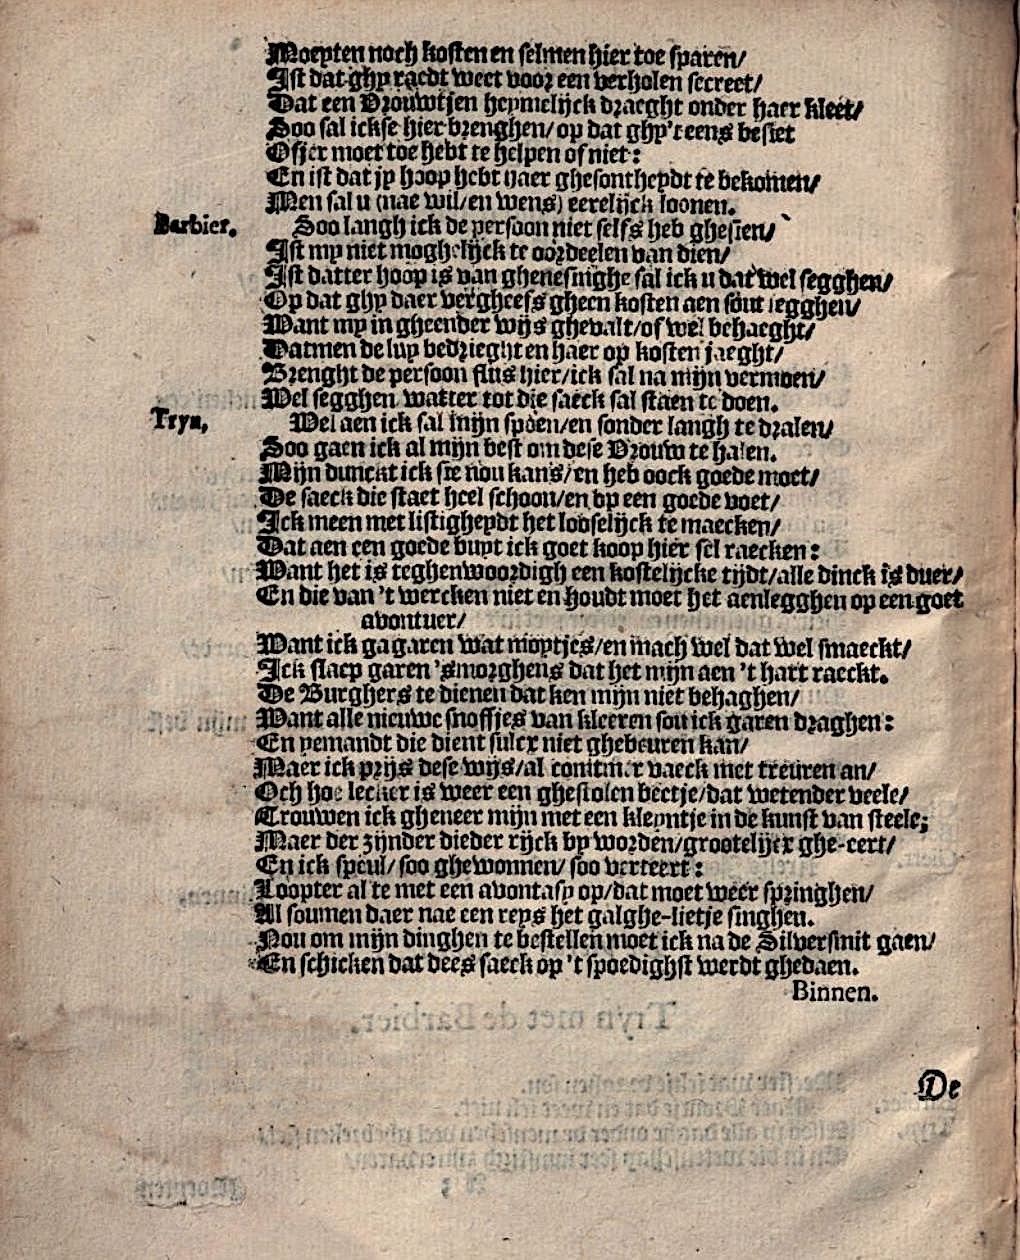 Moeyten noch kosten en selmen hier toe sparen/
Ist dat ghy raedt weet voor een verholen secreet/
Dat een Vrouwtjen heymelijck draeght onder haer kleet/
Soo sal ickse hier brenghen/ op dat ghy't eens besiet
Ofjer moet toe hebt te helpen of niet:
En ist dat jy hoop hebt haer ghesontheydt te bekomen/
Men sal u (nae wil/ en wens) eerelijck loonen.
Barbier. Soo langh ick de persoon niet selfs heb ghesien/
Ist my niet moghelijck te oordeelen van dien/
Ist datter hoop is van ghenesinghe sal ick u dat wel segghen/
Op dat ghy daer vergheefs gheen kosten aen sout legghen/
Want my in gheender wijs ghevalt/ of wel behaeght/
Datmen de luy bedrieght en haer op kosten jaeght/
Brenght de persoon flus hier/ ick sal na mijn vermoen/
Wel segghen watter tot die saeck sal staen te doen.
Tryn, Wel aen ick sal mijn spoen/ en sonder langh te dralen/
Soo gaen ick al mijn best om dese Vrouw te halen.
Mijn dunckt ick sie nou kans/ en heb oock goede moet/
De saeck die staet heel schoon/ en op een goede voet/
Ick meen met listigheydt het looselijck te maecken/
Dat aen een goede buyt ick goet koop hier sel raecken:
Want het is teghenwoordigh een kostelijcke tijdt/ alle dinck is duer/
En die van 't wercken niet en houdt moet het aenlegghen op een goet
avontuer/
Want ick ga garen wat moytjes/ en mach wel dat wel smaeckt/
Ick slaep garen 'smorghens dat het mijn aen 't hart raeckt.
De Burghers te dienen dat ken mijn niet behaghen/
Want alle nieuwe snoffjes van kleeren sou ick garen draghen:
En yemandt die dient sulcx niet ghebeuren kan/
Maer ick prijs dese wijs/ al comtmer vaeck met treuren an/
Och hoe lecker is weer een ghestolen beetje/ dat wetender veele/
Trouwen ick gheneer mijn met een kleyntje in de kunst van steele;
Maer der zijnder dieder rijck by worden/ grootelijcx ghe-eert/
En ick speul/ soo ghewonnen/ soo verteert:
Loopter al te met een avontasy op/ dat moet weer springhen/
Al soumen daer nae een reys het galghe-lietje singhen.
Nou om mijn dinghen te bestellen moet ick na de Silversmit gaen/
En schicken dat dees saeck op 't spoedighst werdt ghedaen.
Binnen.
De